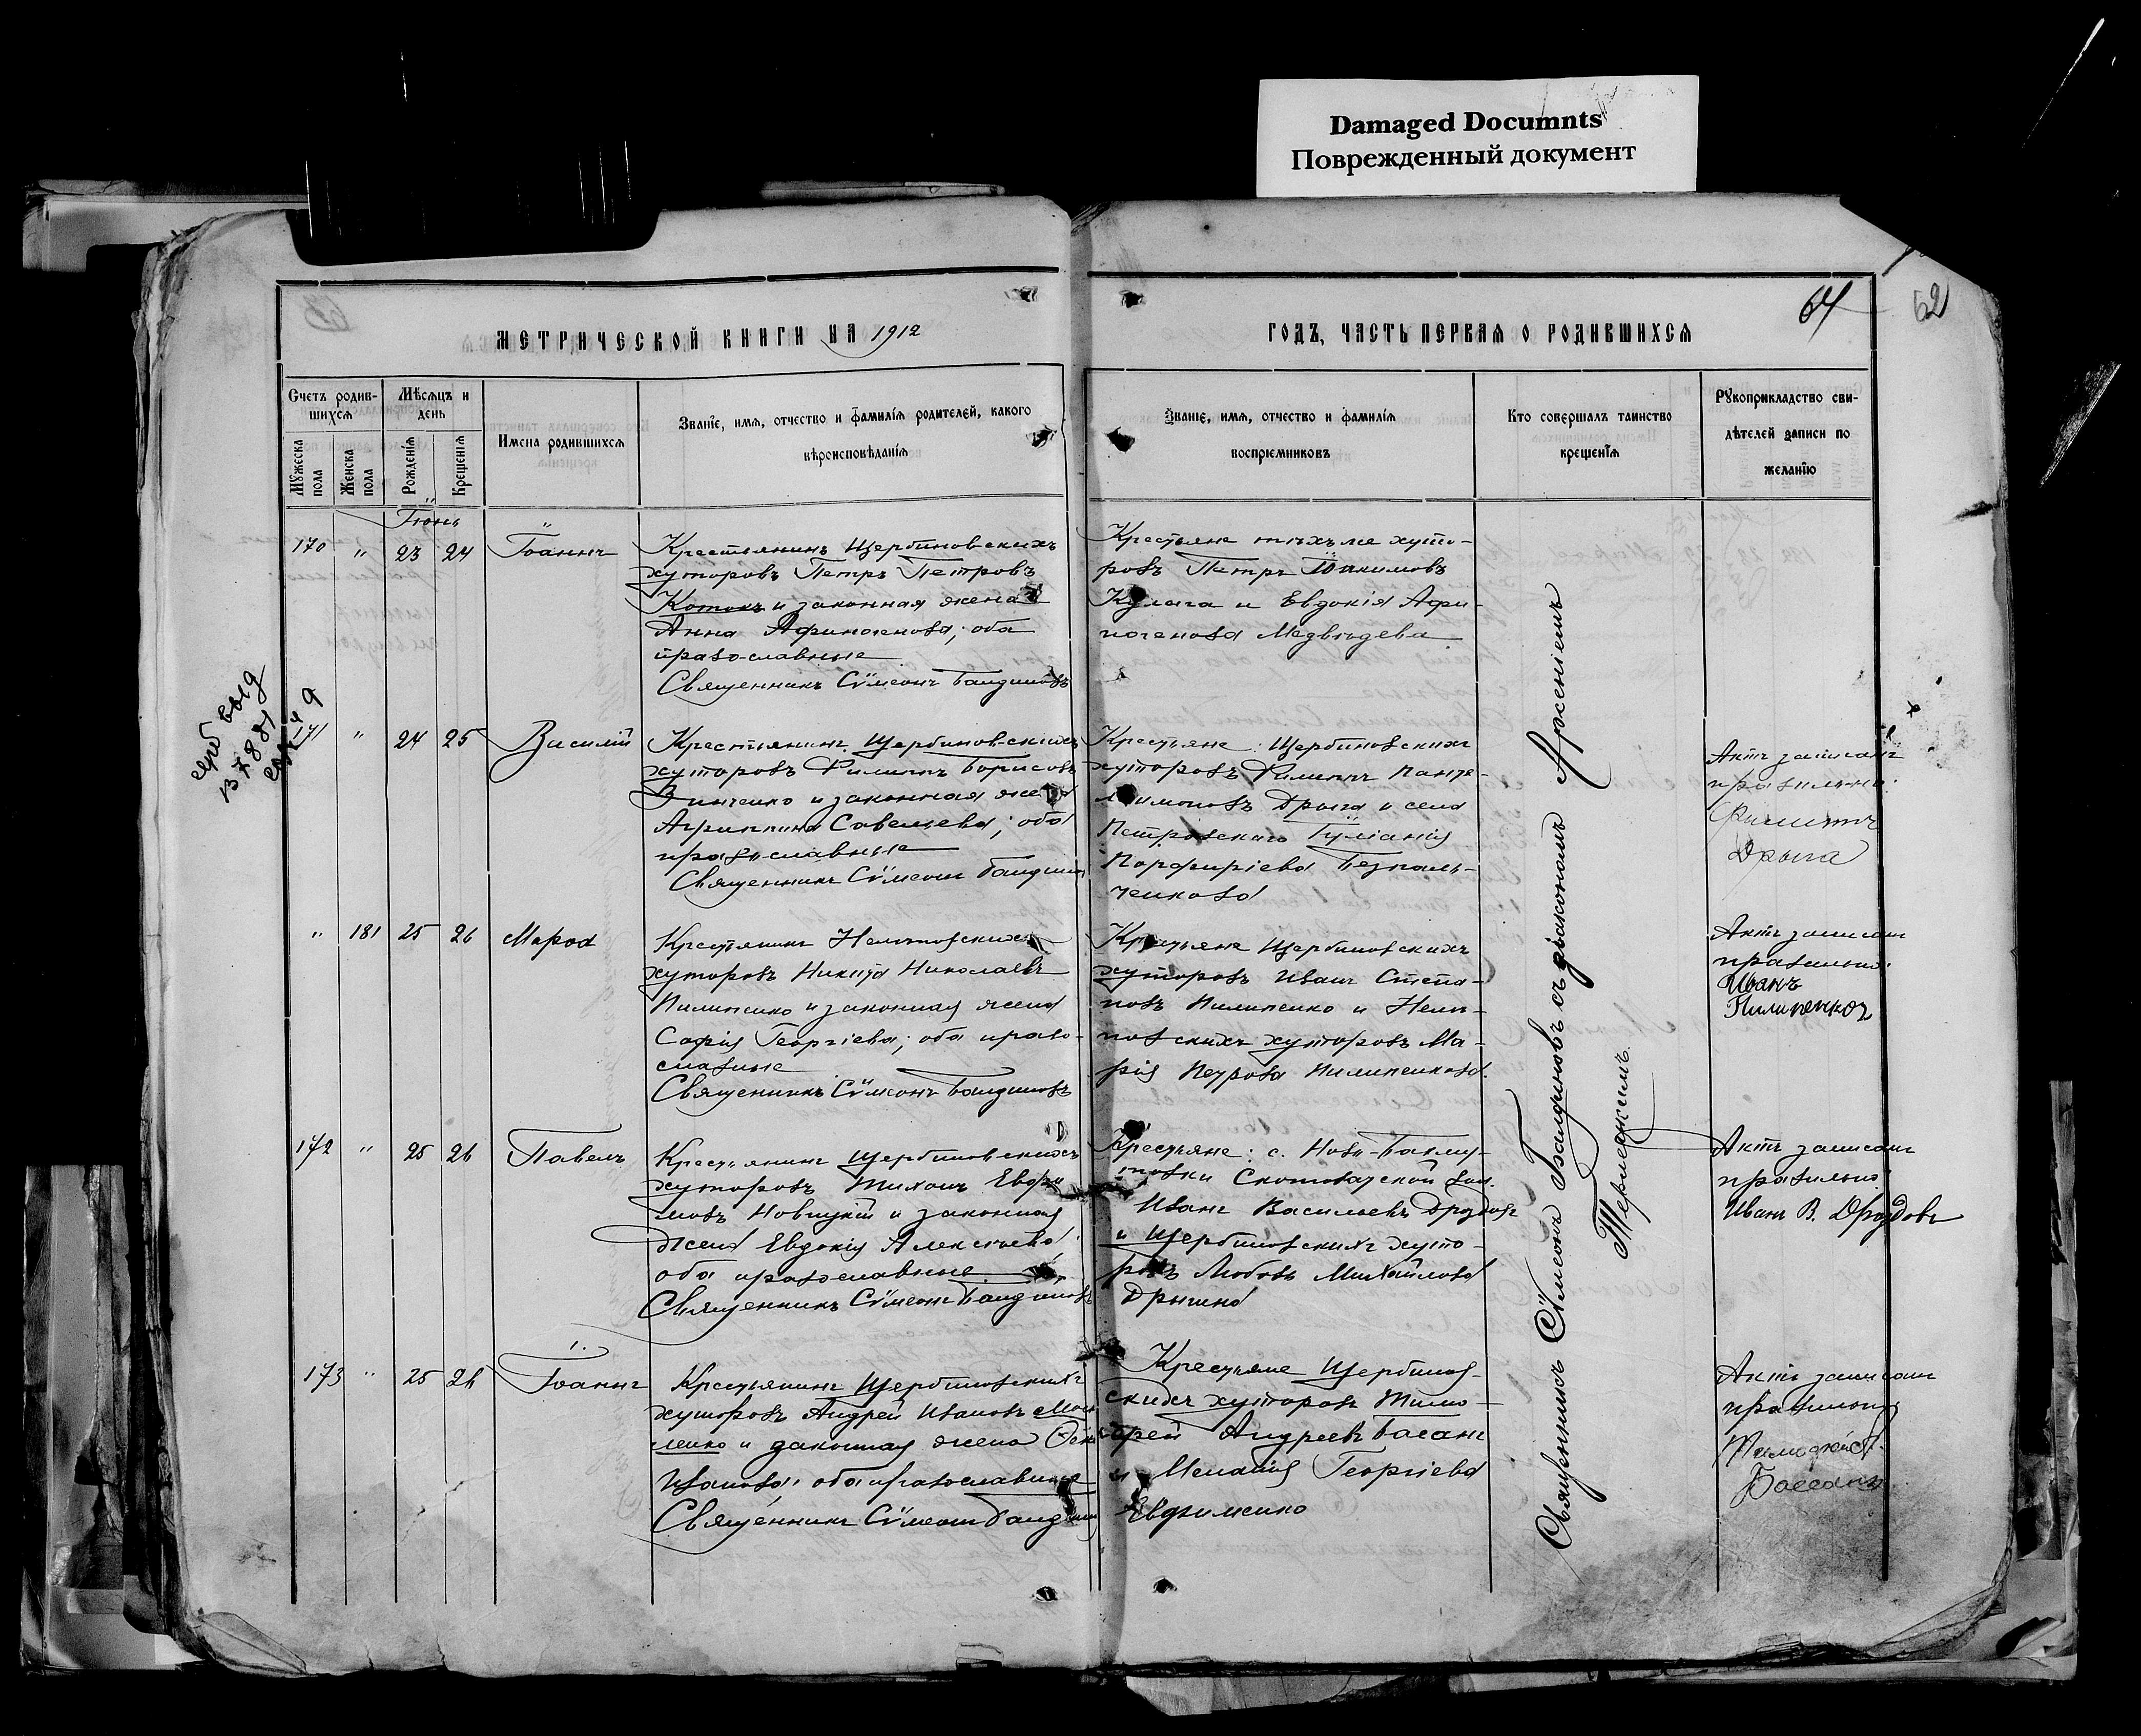 Damaged Documnts
Поврежденный документ
64
62
МЕТРИЧЕСКОЙ КНИГИ НА 1912
ГОДЪ, ЧАСТЬ ПЕРВАЯ О РОДИВШИХСЯ
Счетъ родив-
шихся
Мѣсяцъ и
день
Мужеска
пола
Женска
пола
Рожденія
Крещенія
Имена родившихся
Званіе, имя, отчество и фамилія родителей, какого
вѣроисповѣданія
Званіе, имя, отчество и фамилія
воспріемниковъ
Кто совершалъ таинство
крещенія
Рукоприкладство сви-
дѣтелей записи по
желанію
Іюнь
170 " 23 24 Іоаннъ
Крестьянинъ Щербиновскихъ
хуторовъ Петръ Петровъ
Котокъ и законная жена
Анна Афиногенова; оба
православные
Священникъ Сѵмеонъ Бандиновъ
Крестьяне тѣхъ же хуто-
ровъ Петръ Іоакимовъ
Кулага и Евдокія Афи-
ногенова Медвѣдева
171 " 24 25 Василій
Крестьянинъ Щербиновскихъ
хуторовъ Филиппъ Борисовъ
Зинченко и законная жена
Агриппина Савельева; оба
православные
Священникъ Сѵмеонъ
Крестьяне: Щербиновскихъ
хуторовъ Филиппъ Панте-
леимоновъ Дрыга и села
Петровскаго Іуліанія
Порфиріева Безпаль-
ченкова
Актъ записанъ
правильно:
Филиппъ
Дрыга
" 181 25 26 Марѳа
Крестьянинъ Нелеповскихъ
хуторовъ Никита Николаевъ
Пилипенко и законная жена
Софія Георгіева; оба право-
славные
Священникъ Сѵмеонъ Бандиновъ
Крестьяне Щербиновскихъ
хуторовъ Иванъ Степа-
новъ Пилипенко и Неле-
повскихъ хуторовъ Ма-
рія Петрова Пилипенкова.
Актъ записанъ
правильно:
Иванъ
Пилипенко
172 " 25 26 Павелъ
Крестьянинъ Щербиновскихъ
хуторовъ Тихонъ Евфи
мовъ Новицкій и законная
жена Евдокія Алексѣева;
оба православные
Священникъ Сѵмеонъ Бандиновъ
Крестьяне: с. Ново-Бахму-
товки Скотоватской вол.
Иванъ Васильевъ Дроздовъ
и Щербиновскихъ хуто-
ровъ Любовь Михайлова
Дрыгина
Актъ записанъ
правильно
Иванъ В. Дроздовъ
173 " 25 26 Іоаннъ
Крестьянинъ Щербиновскихъ
хуторовъ Андрей Ивановъ
и законная жена
Иванова; оба православные
Священникъ Сѵмеонъ
Крестьяне Щербинов-
скихъ хуторовъ Тимо-
фей Андреевъ Басанъ
и Меланія Георгіева
Евфименко
Актъ записанъ
правильно
Тимофей
Священникъ Сѵмеонъ Бандиновъ съ діакономъ Арсеніемъ